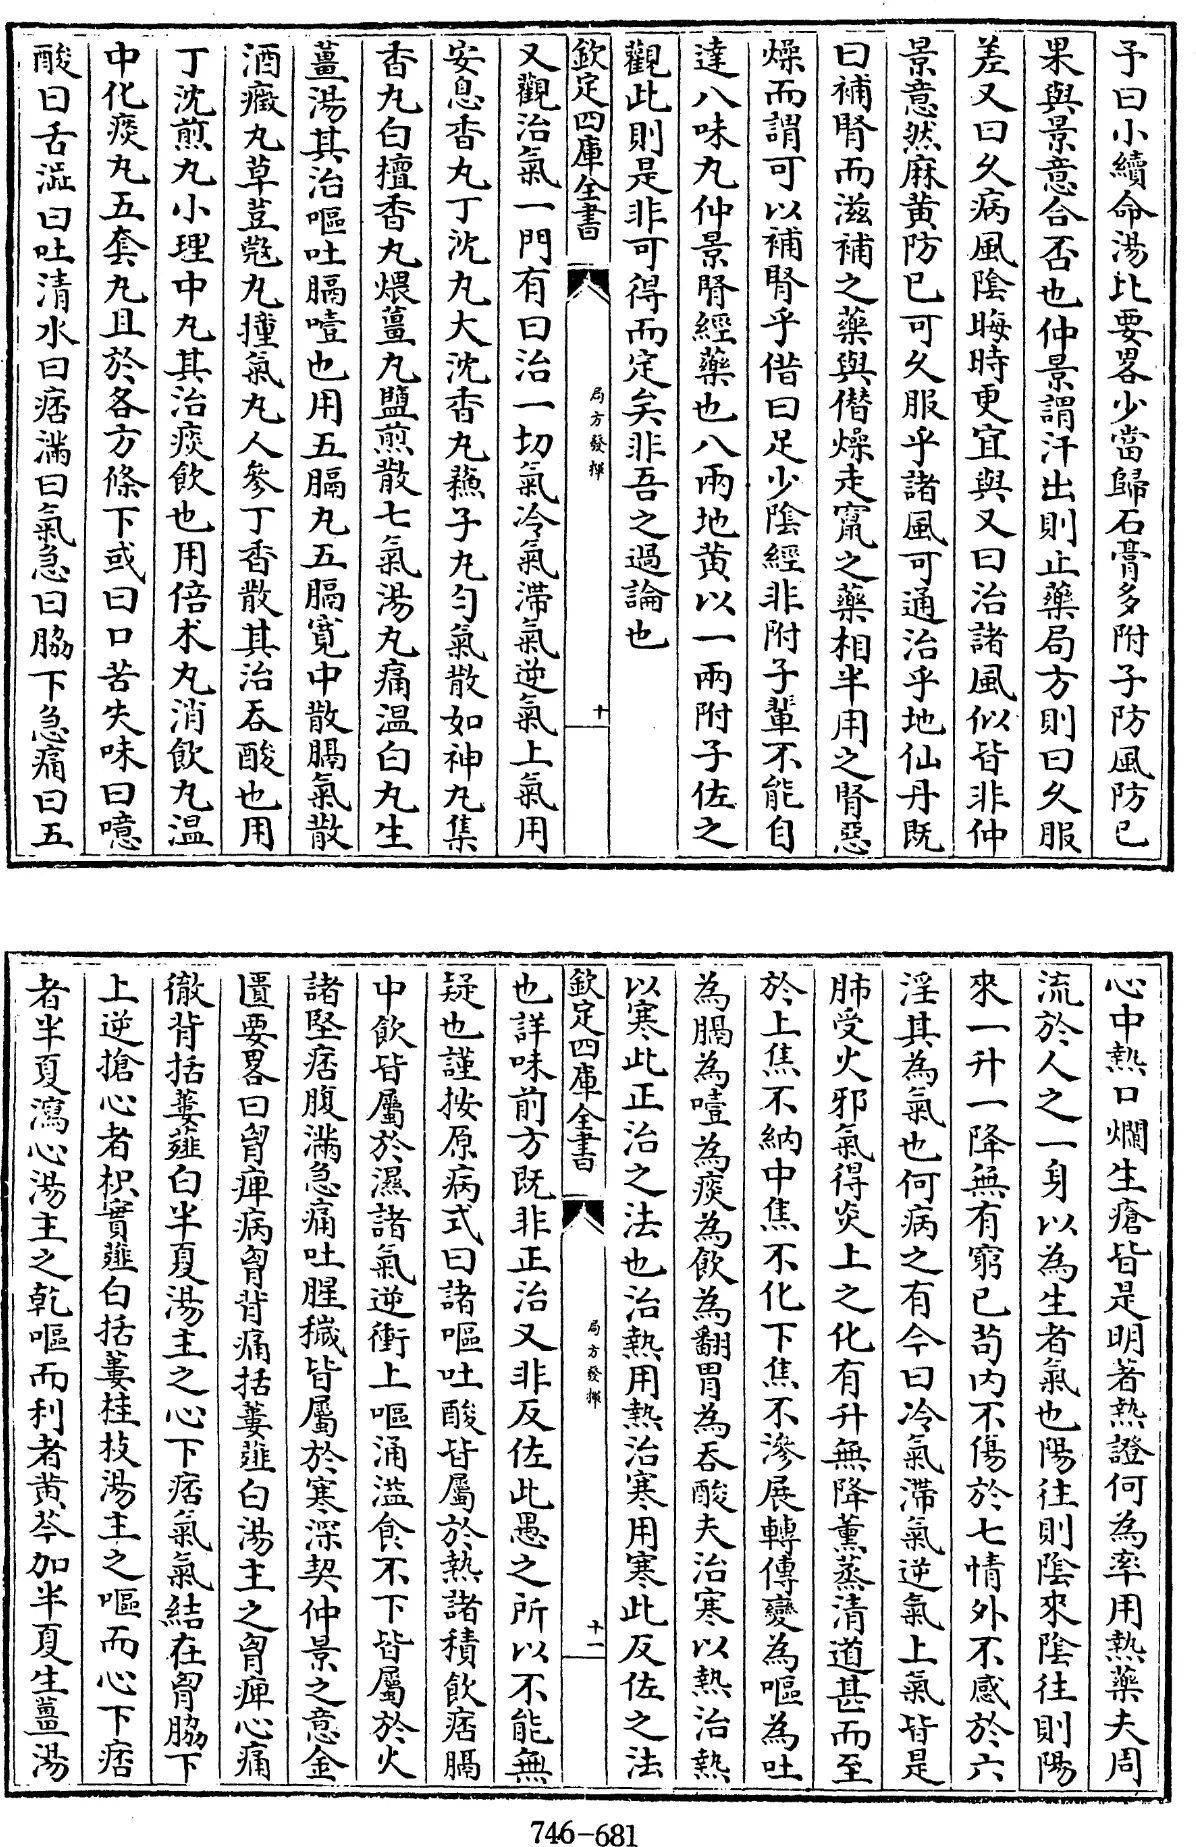 予曰小續命湯比要畧少當歸石膏多附子防風防己
果與景意合否也仲景謂汗出則止藥局方則曰久服
差又曰久病風陰晦時更宜與又曰治諸風似皆非仲
景意然麻黄防己可久服乎諸風可通治乎地仙丹既
曰補腎而滋補之藥與僭燥走竄之藥相半用之腎惡
燥而謂可以補腎乎借曰足少陰經非附子輩不能自
達八味丸仲景腎經藥也八兩地黄以一兩附子佐之
觀此則是非可得而定矣非吾之過論也
欽定四庫全書
局方發揮
十
又觀治氣一門有曰治一切氣冷氣滯氣逆氣上氣用
安息香丸丁沈丸大沈香丸蘓子丸匀氣散如神丸集
香丸白檀香丸煨薑丸鹽煎散七氣湯丸痛温白丸生
薑湯其治嘔吐膈噎也用五膈丸五膈寛中散膈氣散
酒癥丸草荳蔻丸撞氣丸人參丁香散其治吞酸也用
丁沈煎丸小理中丸其治痰飲也用倍术丸消飲丸温
中化痰丸五套丸且於各方條下或曰口苦失味曰噫
酸曰舌澁曰吐清水曰痞滿曰氣急曰脇下急痛曰五
心中熱口爛生瘡皆是明著熱證何為率用熱藥夫周
流於人之一身以為生者氣也陽往則陰來陰往則陽
來一升一降無有窮已苟内不傷於七情外不感於六
淫其為氣也何病之有今曰冷氣滯氣逆氣上氣皆是
肺受火邪氣得炎上之化有升無降薰蒸清道甚而至
於上焦不納中焦不化下焦不滲展轉傳變為嘔為吐
為膈為噎為痰為飲為翻胃為吞酸夫治寒以熱治熱
以寒此正治之法也治熱用熱治寒用寒此反佐之法
欽定四庫全書
局方發揮
十一
也詳味前方既非正治又非反佐此愚之所以不能無
疑也謹按原病式曰諸嘔吐酸皆屬於熱諸積飲痞膈
中飲皆屬於濕諸氣逆衝上嘔涌溢食不下皆屬於火
諸堅痞腹滿急痛吐腥穢皆屬於寒深契仲景之意金
匱要畧曰胷痺病胷背痛括蔞薤白湯主之胷痺心痛
徹背括蔞薤白半夏湯主之心下痞氣氣結在胷脇下
上逆搶心者枳實薤白括蔞桂枝湯主之嘔而心下痞
者半夏瀉心湯主之乾嘔而利者黄芩加半夏生薑湯
746-681